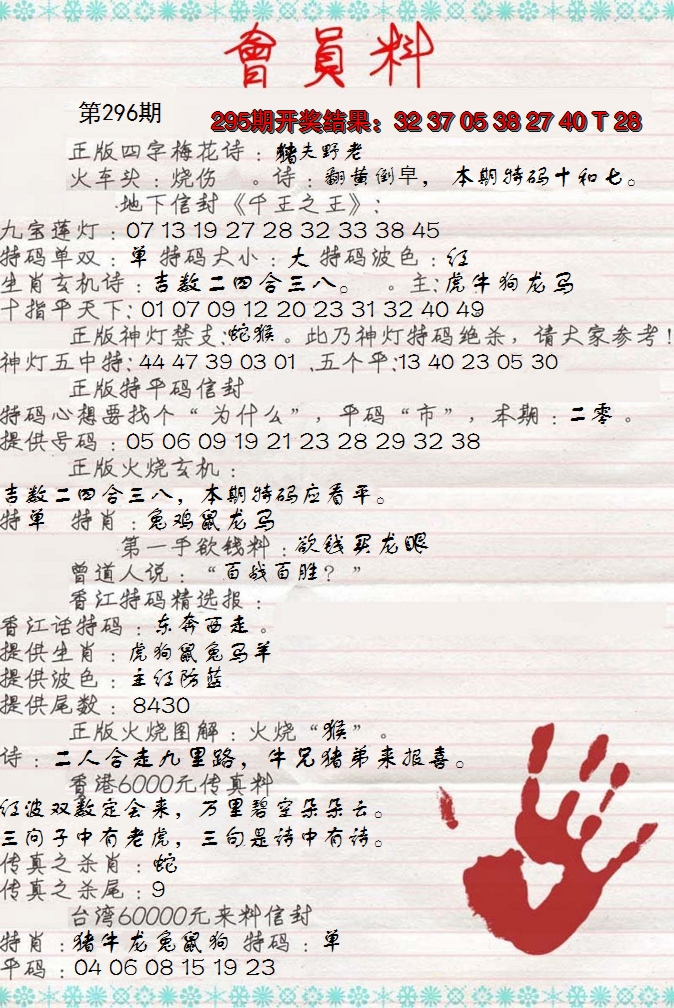 會員料
第296期
295期开奖结果：32 37 05 38 27 40 T 28
正版四字梅花诗：猪夫野老
火车头：烧伤 。诗：翻黄倒皁，本期特码十和七。
地下信封《千王之王》：
九宝莲灯：07 13 19 27 28 32 33 38 45
特码单双：单 特码大小：大 特码波色：红
生肖玄机诗：吉数二四合三八。 。主：虎牛狗龙马
十指平天下：01 07 09 12 20 23 31 32 40 49
正版神灯禁支：蛇猴。此乃神灯特码绝杀，请大家参考！
神灯五中特：44 47 39 03 01 、五个平：13 40 23 05 30
正版特平码信封
特码心想要找个“为什么”，平码“市”，本期：二零。
提供号码：05 06 09 19 21 23 28 29 32 38
正版火烧玄机：
吉数二四合三八，本期特码应看平。
特单 特肖：兔鸡鼠龙马
第一手欲钱料：欲钱买龙眼
曾道人说：“百战百胜？”
香江特码精选报：
香江话特码：东奔西走。
提供生肖：虎狗鼠兔马羊
提供波色：主红防蓝
提供尾数：8430
正版火烧图解：火烧“猴”。
诗：二人合走九里路，牛兄猪弟来报喜。
香港6000元传真料
红波双数定会来，万里碧空朵朵云。
三问子中有老虎，三句是诗中有诗。
传真之杀肖：蛇
传真之杀尾：9
台湾60000元来料信封
特肖：猪牛龙兔鼠狗 特码：单
平码：04 06 08 15 19 23